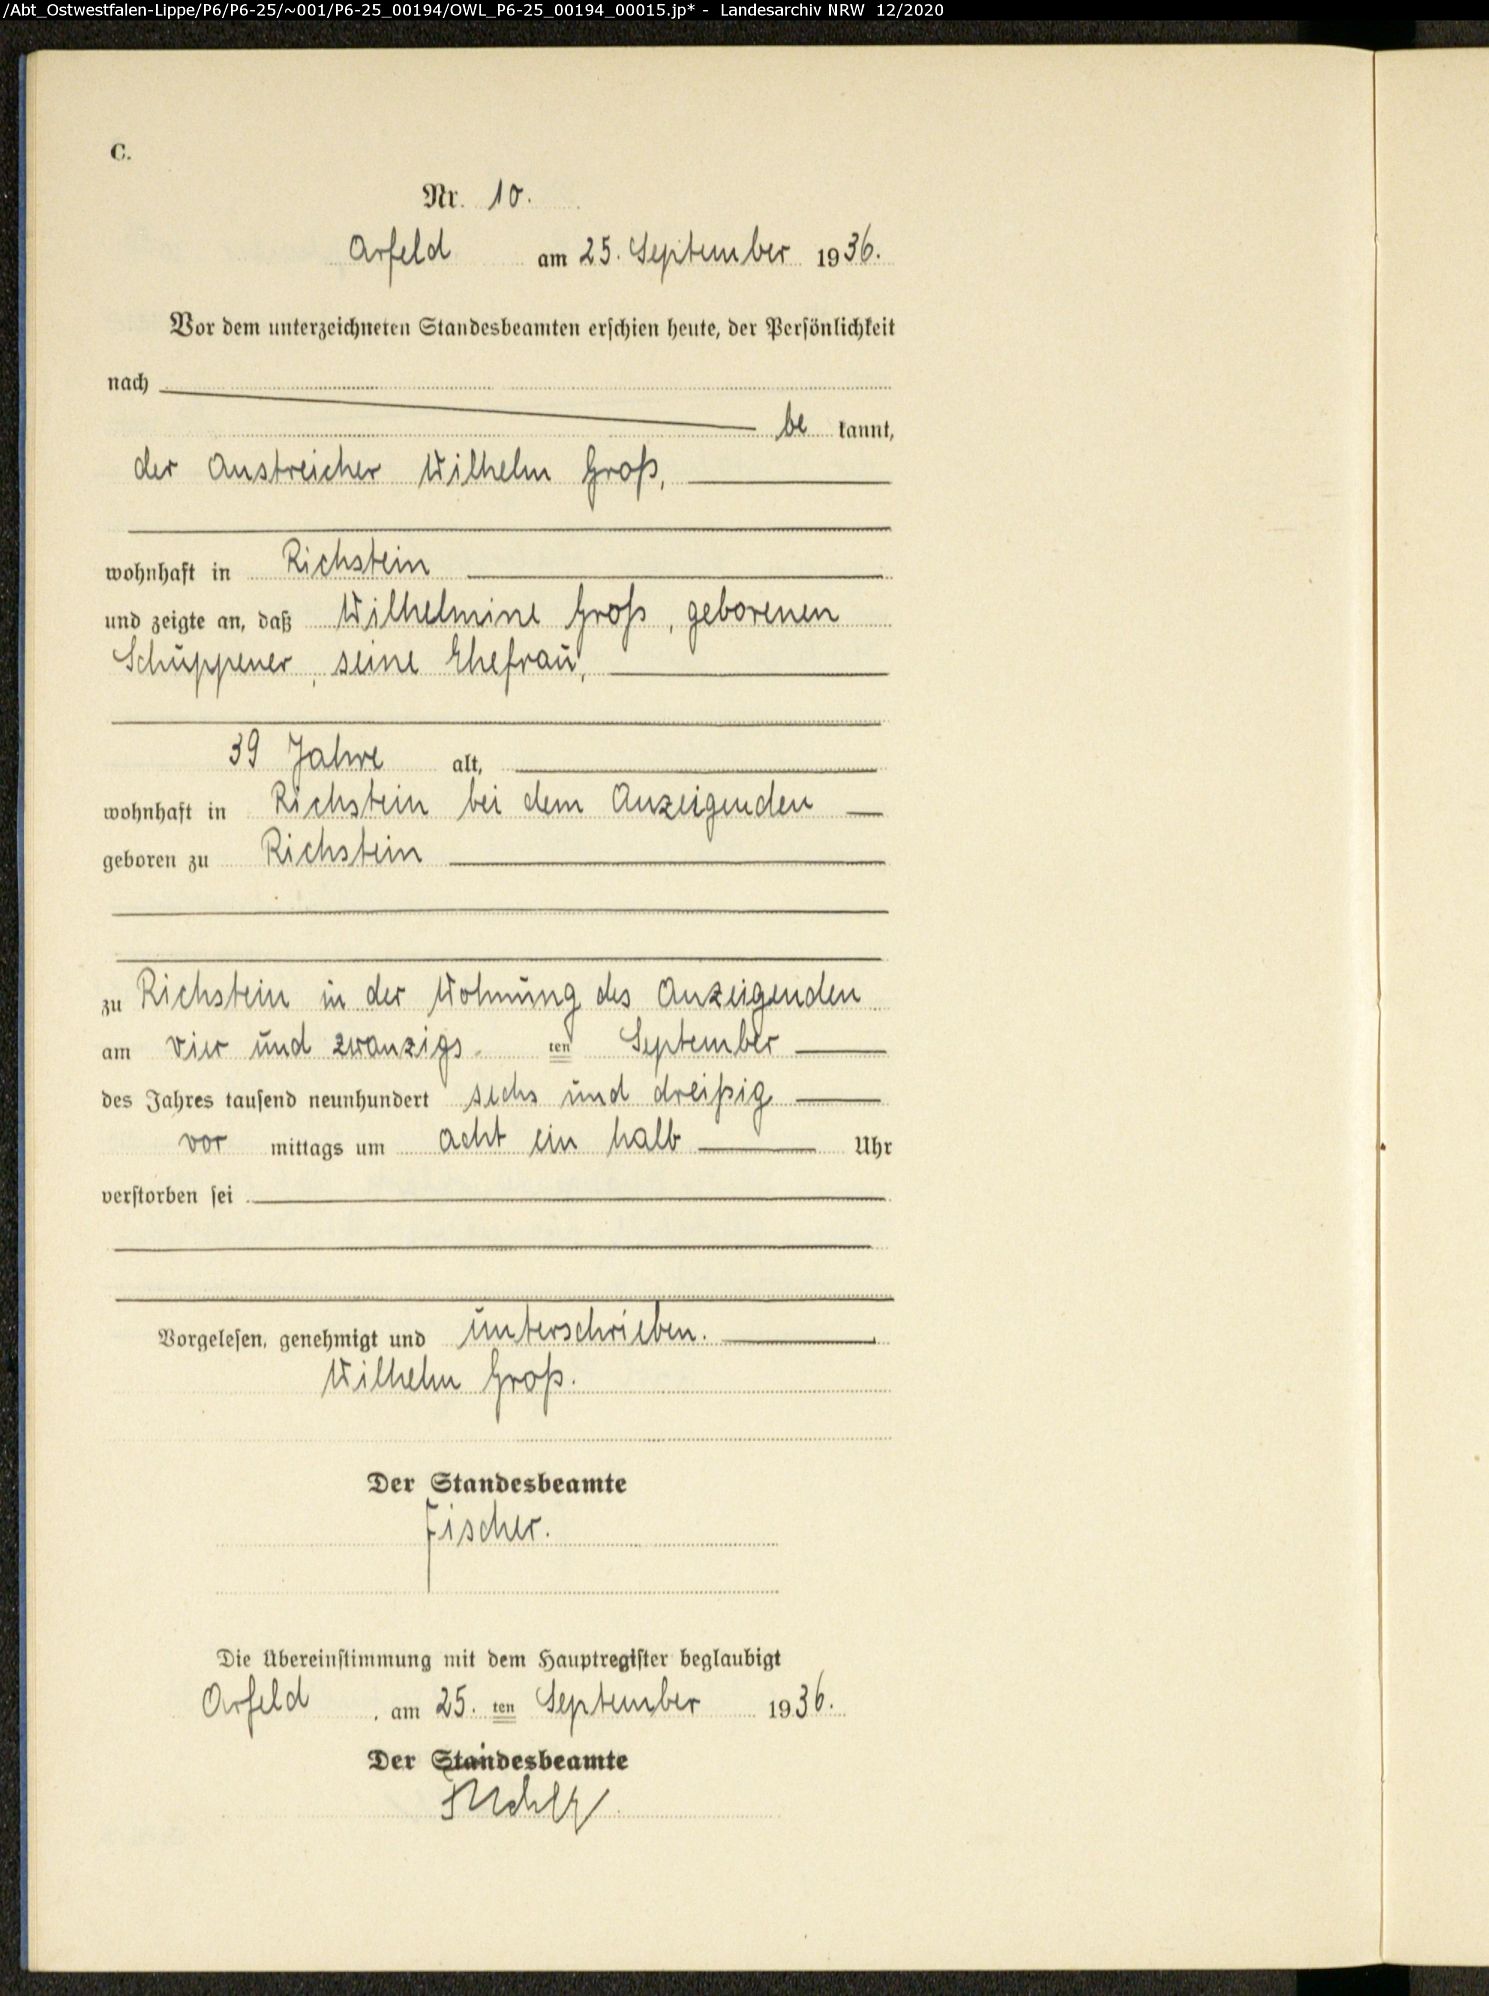 /Abt_Ostwestfalen-Lippe/P6/P6-25/~001/P6-25_00194/OWL_P6-25_00194_00015.jp* - Landesarchiv NRW 12/2020
C.
Nr. 10.
Arfeld am 25. September 1936.
Vor dem unterzeichneten Standesbeamten erschien heute, der Persönlichkeit
nach
be kannt,
der Anstreicher Wilhelm Groß,
wohnhaft in Richstein
und zeigte an, daß Wilhelmine Groß, geborenen
Schüppener, seine Ehefrau,
39 Jahre alt,
wohnhaft in Richstein bei dem Anzeigenden
geboren zu Richstein
zu Richstein in der Wohnung des Anzeigenden
am vier und zwanzigs ten September
des Jahres tausend neunhundert sechs und dreißig
vor mittags um acht ein halb Uhr
verstorben sei
Vorgelesen, genehmigt und unterschrieben.
Wilhelm Groß.
Der Standesbeamte
Fischer.
Die Übereinstimmung mit dem Hauptregister beglaubigt
Arfeld, am 25. ten September 1936.
Der Standesbeamte